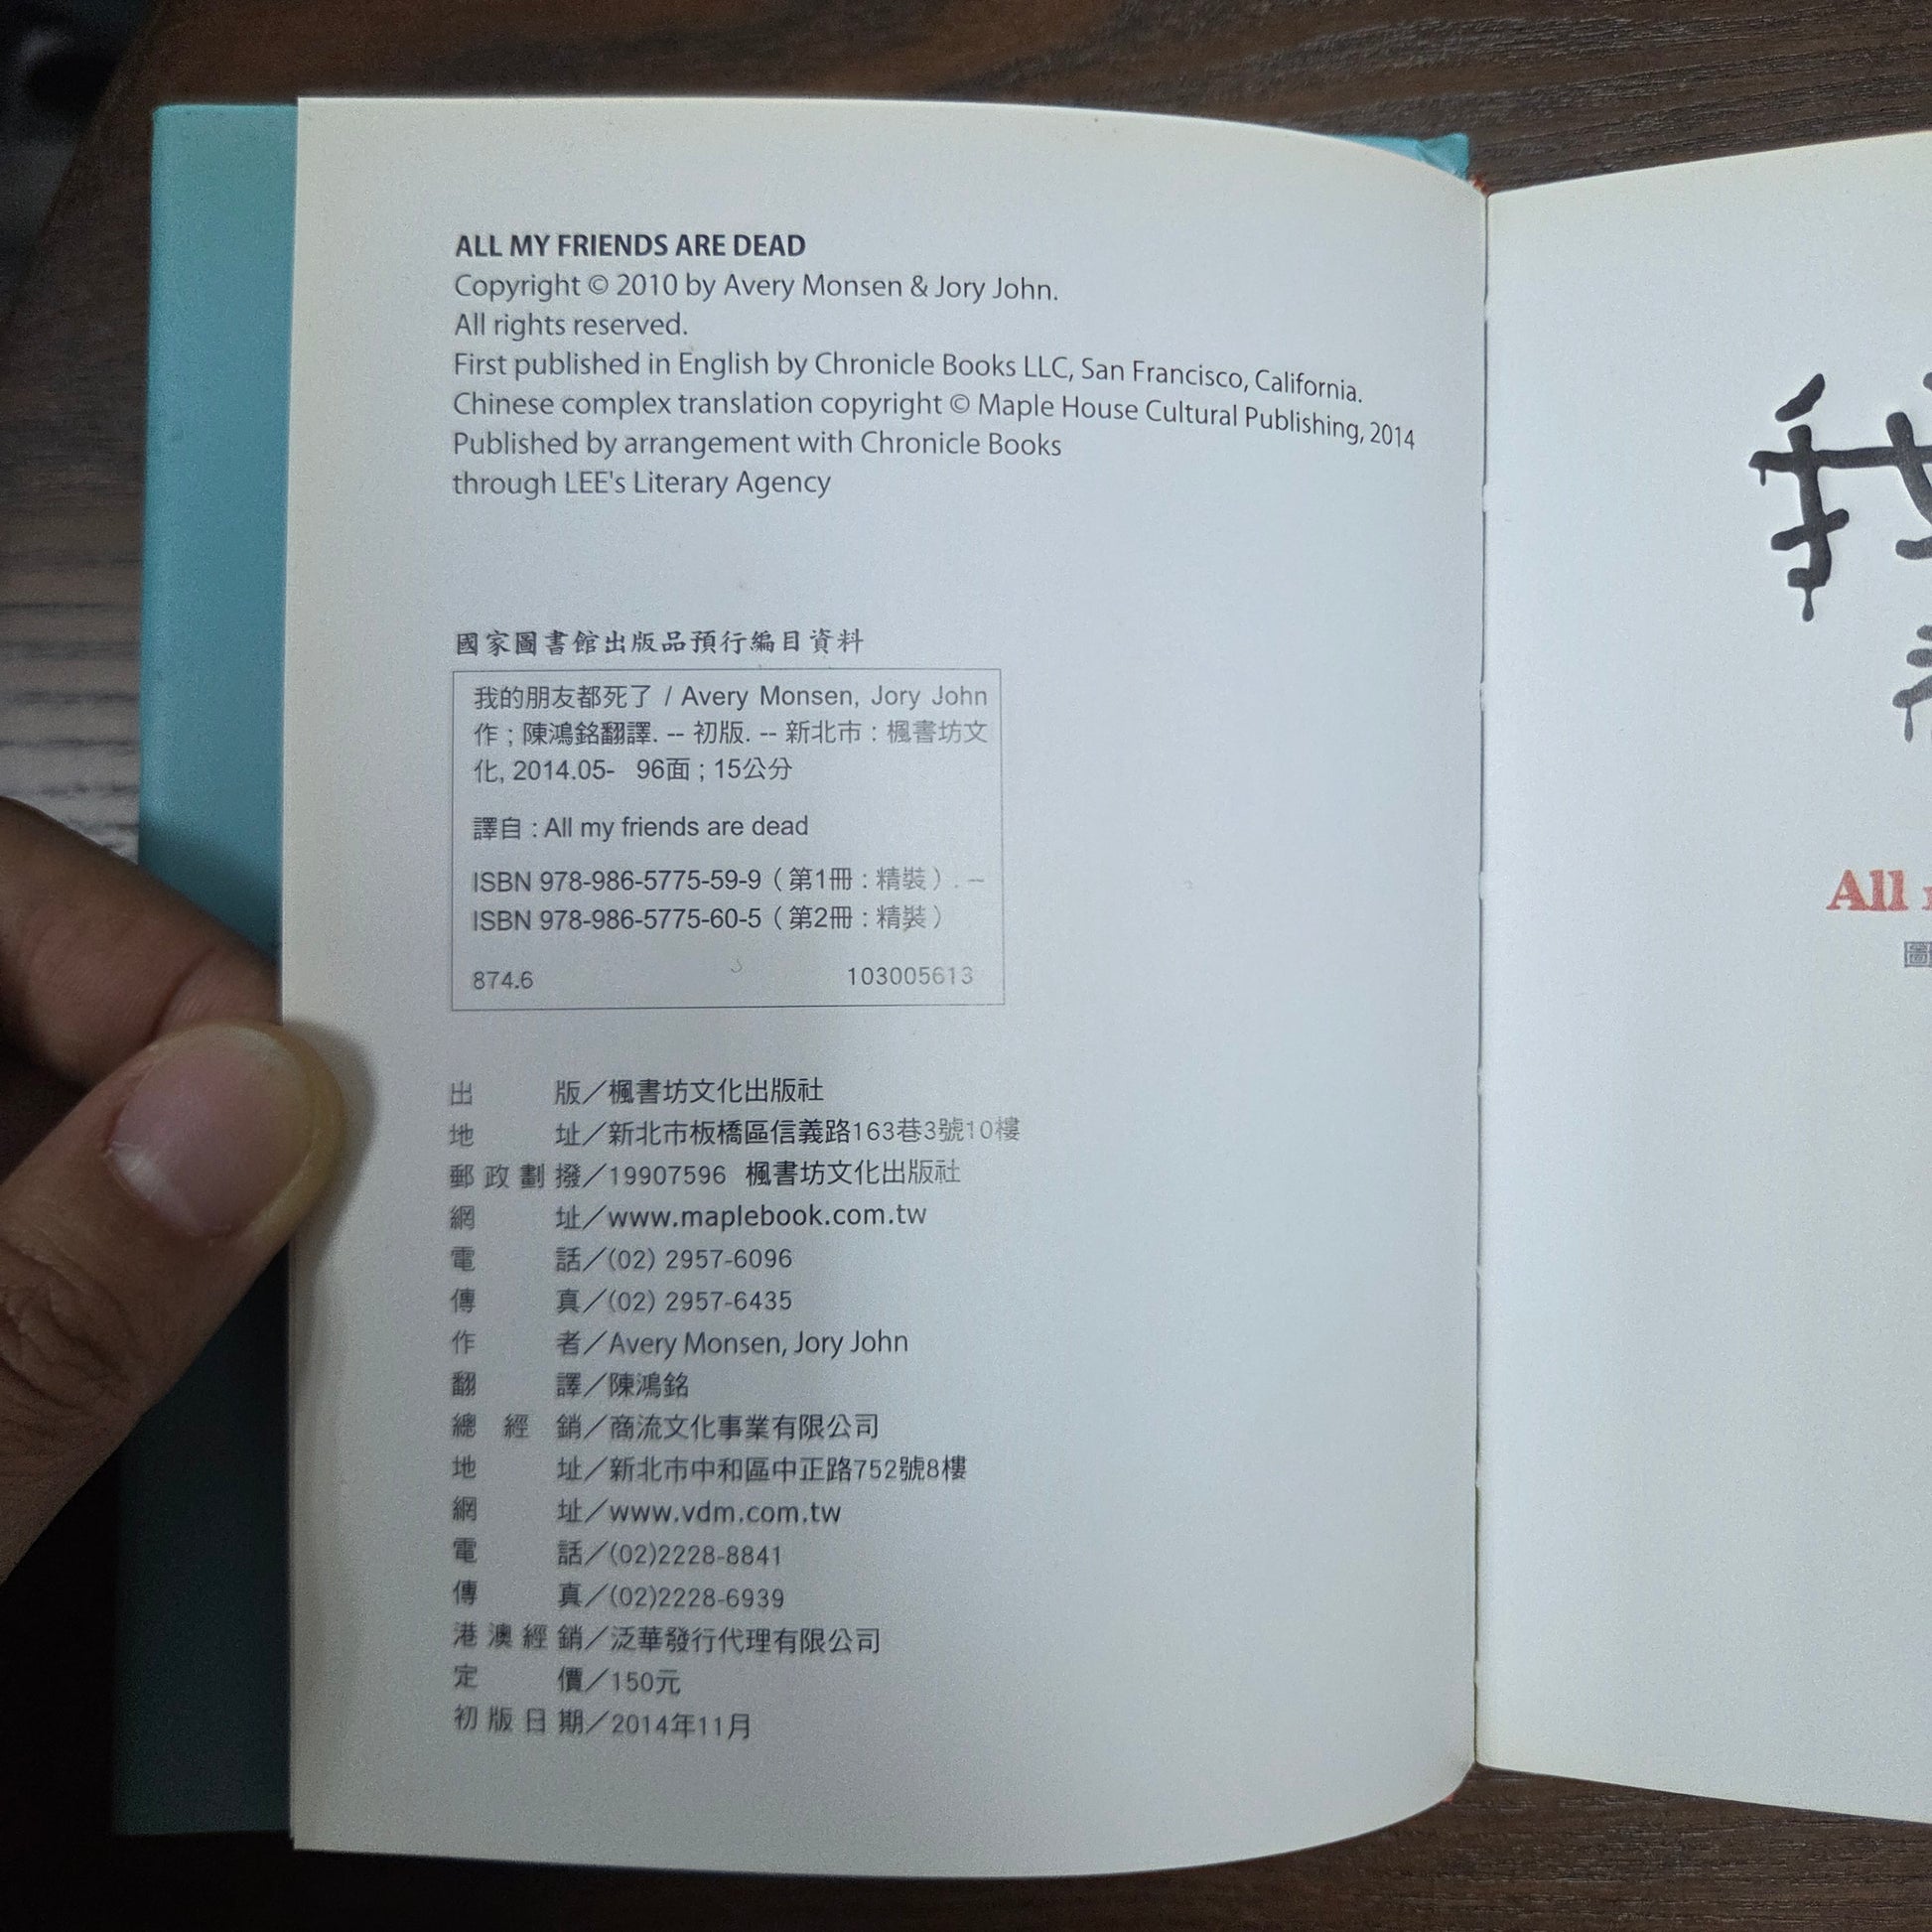 ALL MY FRIENDS ARE DEAD
Copyright © 2010 by Avery Monsen & Jory John.
All rights reserved.
First published in English by Chronicle Books LLC, San Francisco, California.
Chinese complex translation copyright © Maple House Cultural Publishing, 2014
Published by arrangement with Chronicle Books
through LEE's Literary Agency
國家圖書館出版品預行編目資料
我的朋友都死了 / Avery Monsen, Jory John
作 ; 陳鴻銘翻譯. -- 初版. -- 新北市 : 楓書坊文
化, 2014.05- 96面 ; 15公分
譯自 : All my friends are dead
ISBN 978-986-5775-59-9（第1冊 : 精裝）. --
ISBN 978-986-5775-60-5（第2冊 : 精裝）
874.6 103005613
出版／楓書坊文化出版社
地址／新北市板橋區信義路163巷3號10樓
郵政劃撥／19907596 楓書坊文化出版社
網址／www.maplebook.com.tw
電話／(02) 2957-6096
傳真／(02) 2957-6435
作者／Avery Monsen, Jory John
翻譯／陳鴻銘
總經銷／商流文化事業有限公司
地址／新北市中和區中正路752號8樓
網址／www.vdm.com.tw
電話／(02)2228-8841
傳真／(02)2228-6939
港澳經銷／泛華發行代理有限公司
定價／150元
初版日期／2014年11月
我
All
圖